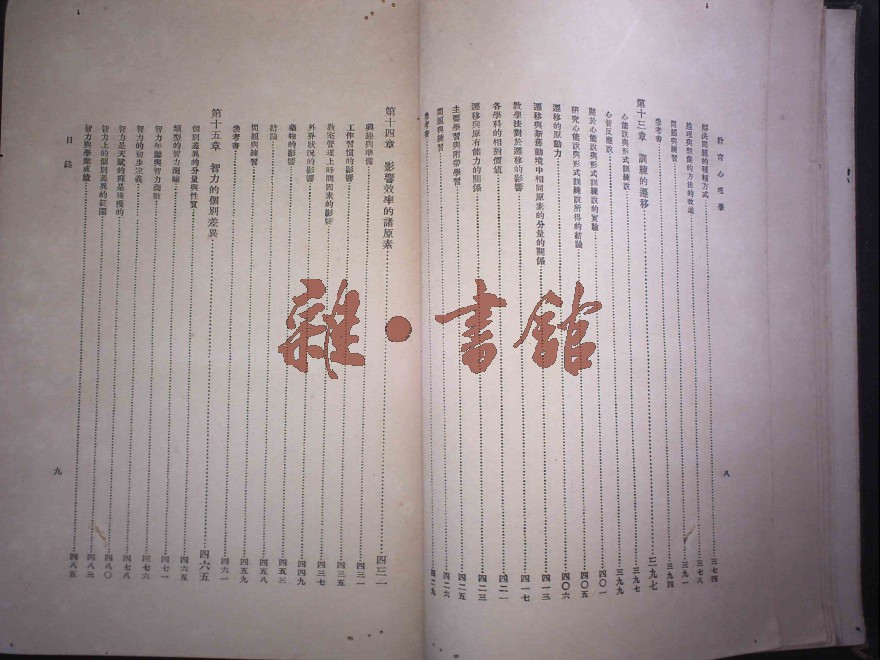 教育心理學
解決問題的種種方式 三七四
推理與想像的方法的效率 三七八
問題與練習 三九一
參考書 三九四
第十三章 訓練的遷移 三九七
心能說與形式訓練說 三九七
心智反應說 三九九
關於心能說與形式訓練說的實驗 四〇一
研究心能說與形式訓練說所得的結論 四〇五
遷移的原動力 四〇六
遷移與新舊動境中相同原素的分量的關係 四一三
教學法對於遷移的影響 四一七
各學科的相對價值 四二一
遷移與原有能力的關係 四二三
主要學習與附帶學習 四二五
問題與練習 四二六
參考書 四二九
八
第十四章 影響效率的諸原素 四三一
興趣與準備 四三一
工作習慣的影響 四三五
教室管理上時間因素的影響 四三七
外界狀況的影響 四四九
藥物的影響 四五三
結論 四五八
問題與練習 四五九
參考書 四六一
第十五章 智力的個別差異 四六五
個別差異的分量與性質 四六五
類型的智力測驗 四七一
智力年齡與智力商數 四七六
智力的初步定義 四七八
智力是天賦的抑是後獲的 四八〇
智力上的個別差異的範圍 四八三
智力與學業成績 四八五
目錄
九
雜·書館